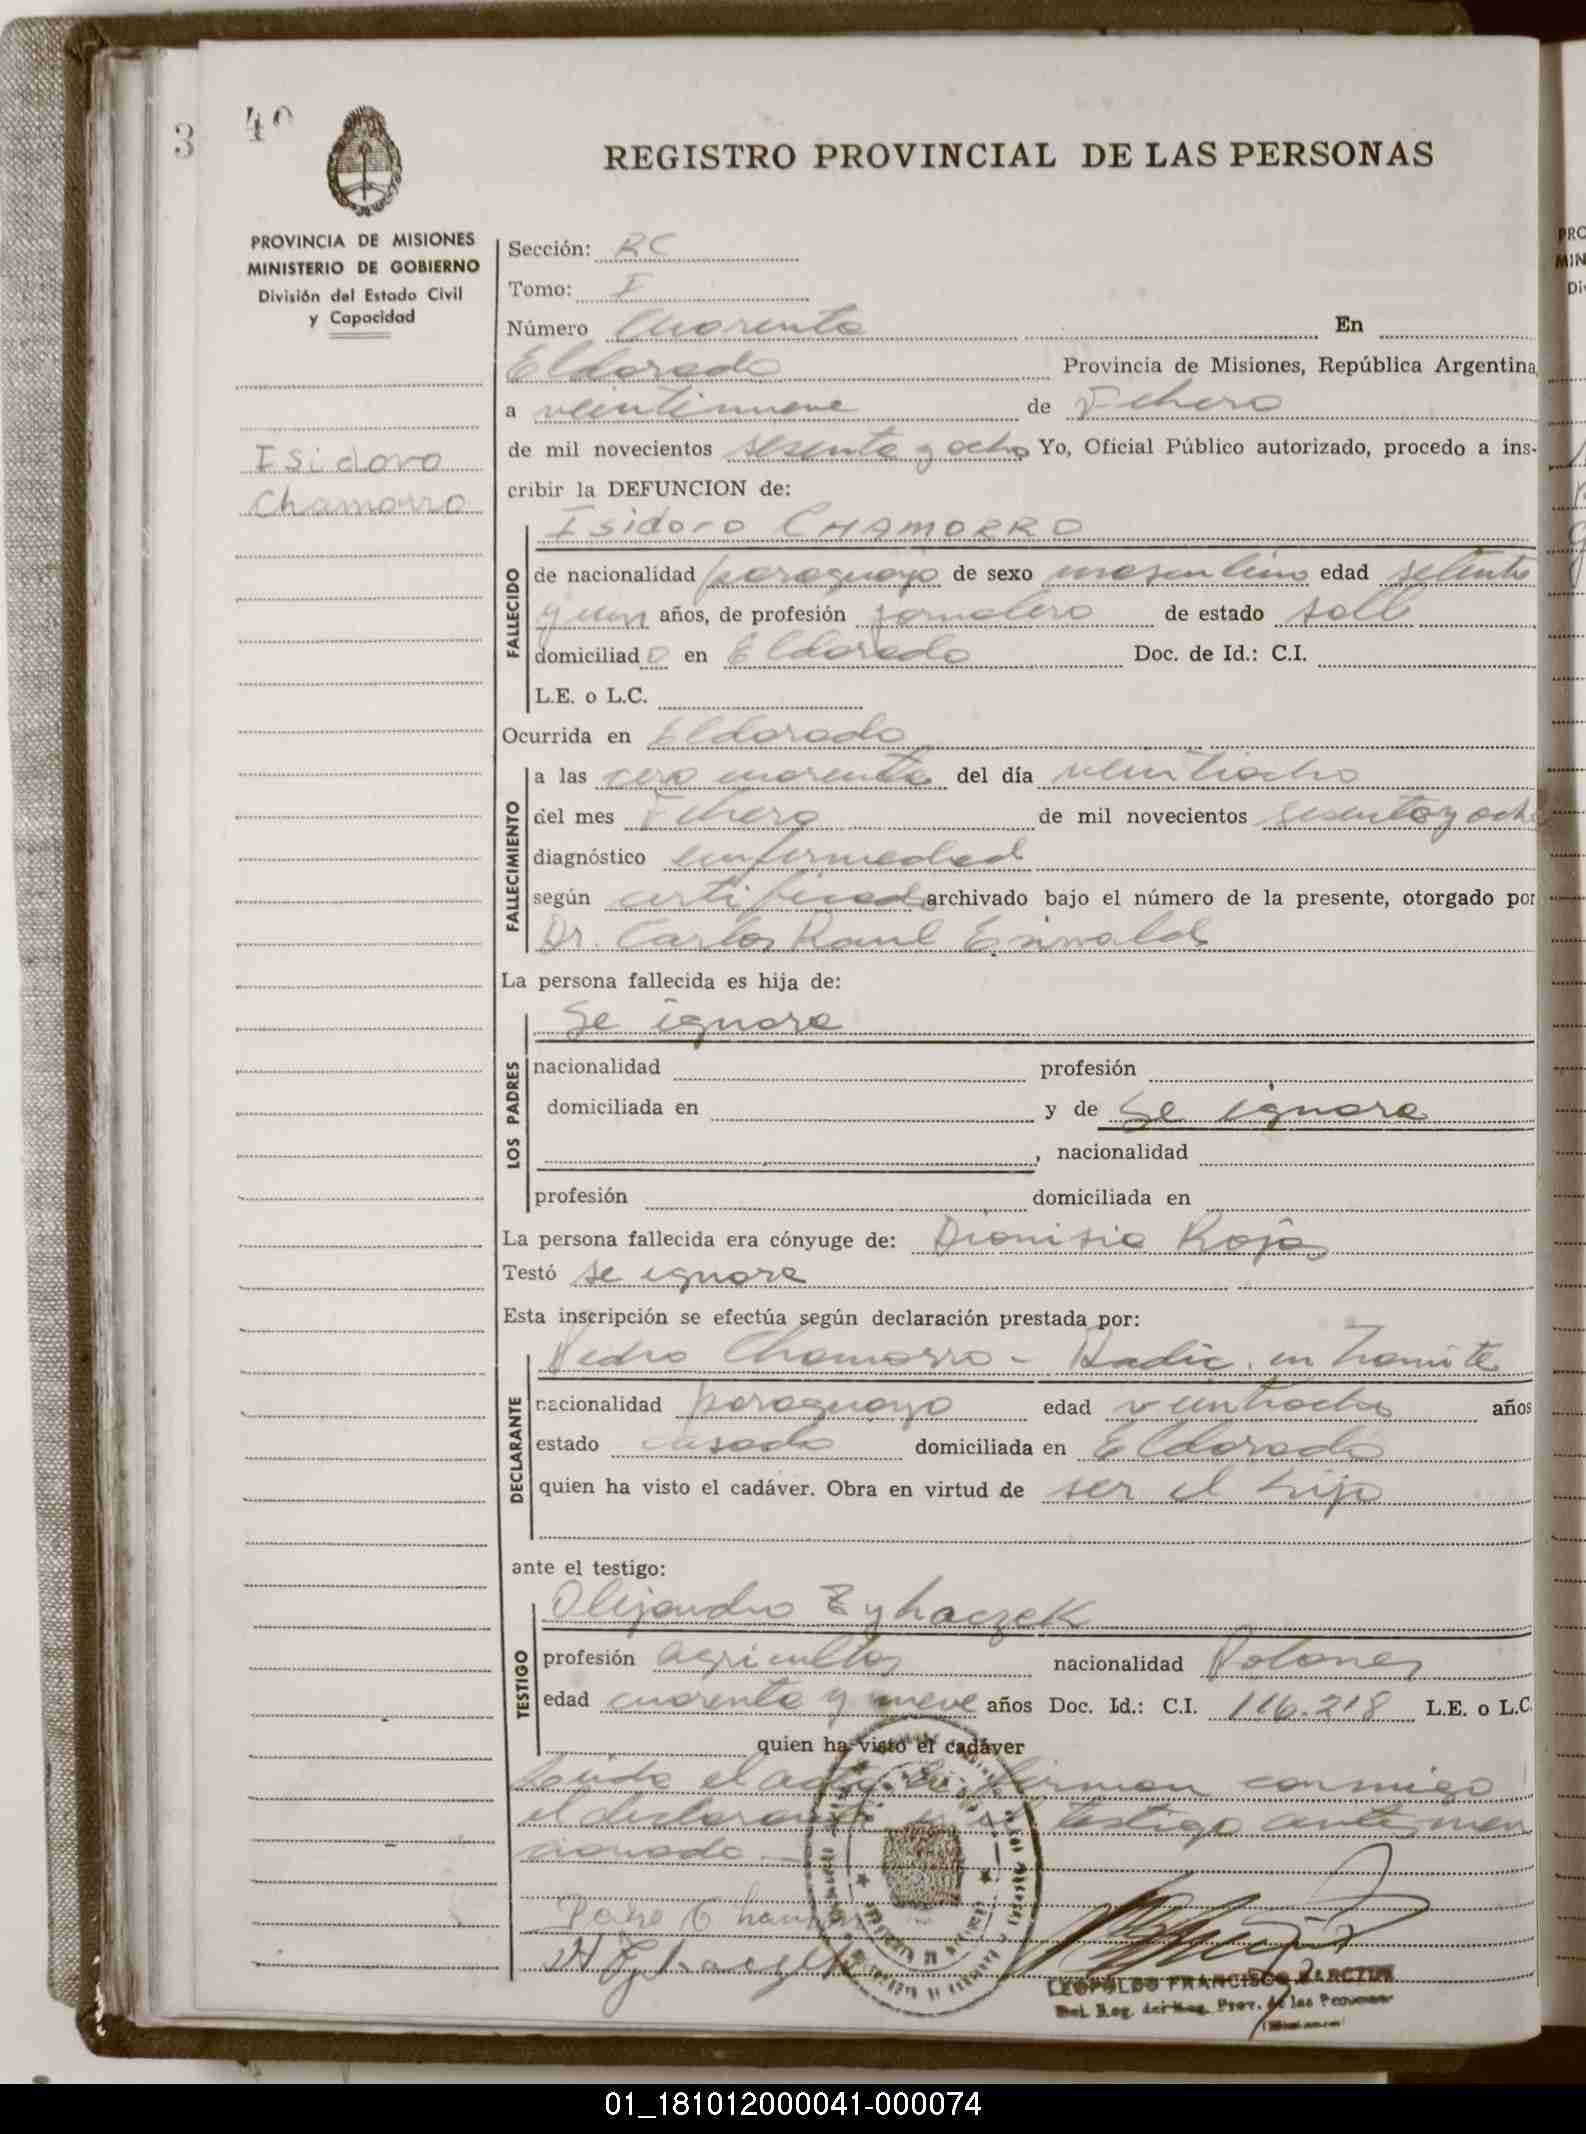 3 40
REGISTRO PROVINCIAL DE LAS PERSONAS
PROVINCIA DE MISIONES
MINISTERIO DE GOBIERNO
División del Estado Civil
y Capacidad
Isidoro
Chamorro
Sección: RC
Tomo: I
Número Cuarenta En
Eldorado Provincia de Misiones, República Argentina
a veintinueve de Enero
de mil novecientos sesenta y ocho Yo, Oficial Público autorizado, procedo a ins-
cribir la DEFUNCION de:
Isidoro CHAMORRO
FALLECIDO
de nacionalidad paraguayo de sexo masculino edad setenta
y un años, de profesión jornalero de estado solt
domiciliado en Eldorado Doc. de Id.: C.I.
L.E. o L.C.
Ocurrida en Eldorado
FALLECIMIENTO
a las cero cuarenta del día veintiocho
del mes Enero de mil novecientos sesenta y ocho
diagnóstico enfermedad
según certificado archivado bajo el número de la presente, otorgado por
Dr. Carlos Raul
La persona fallecida es hija de:
LOS PADRES
Se ignora
nacionalidad profesión
domiciliada en y de Se ignora
, nacionalidad
profesión domiciliada en
La persona fallecida era cónyuge de: Dionisia Rojas
Testó se ignora
Esta inscripción se efectúa según declaración prestada por:
DECLARANTE
Pedro Chamorro - Radic. en tramite
nacionalidad paraguayo edad veintiocho años
estado casado domiciliada en Eldorado
quien ha visto el cadáver. Obra en virtud de ser el hijo
ante el testigo:
TESTIGO
Alejandro Zyhaczek
profesión agricultor nacionalidad Polones
edad cuarenta y nueve años Doc. Id.: C.I. 116.218 L.E. o L.C.
quien ha visto el cadáver
Leida el acta la firman conmigo
el declarante y el testigo antes men
cionado.-
Pedro Chamorro
LEOPOLDO FRANCISCO
Del. Reg. del Reg. Prov. de las Personas
PRO
MIN
Di
01_181012000041-000074